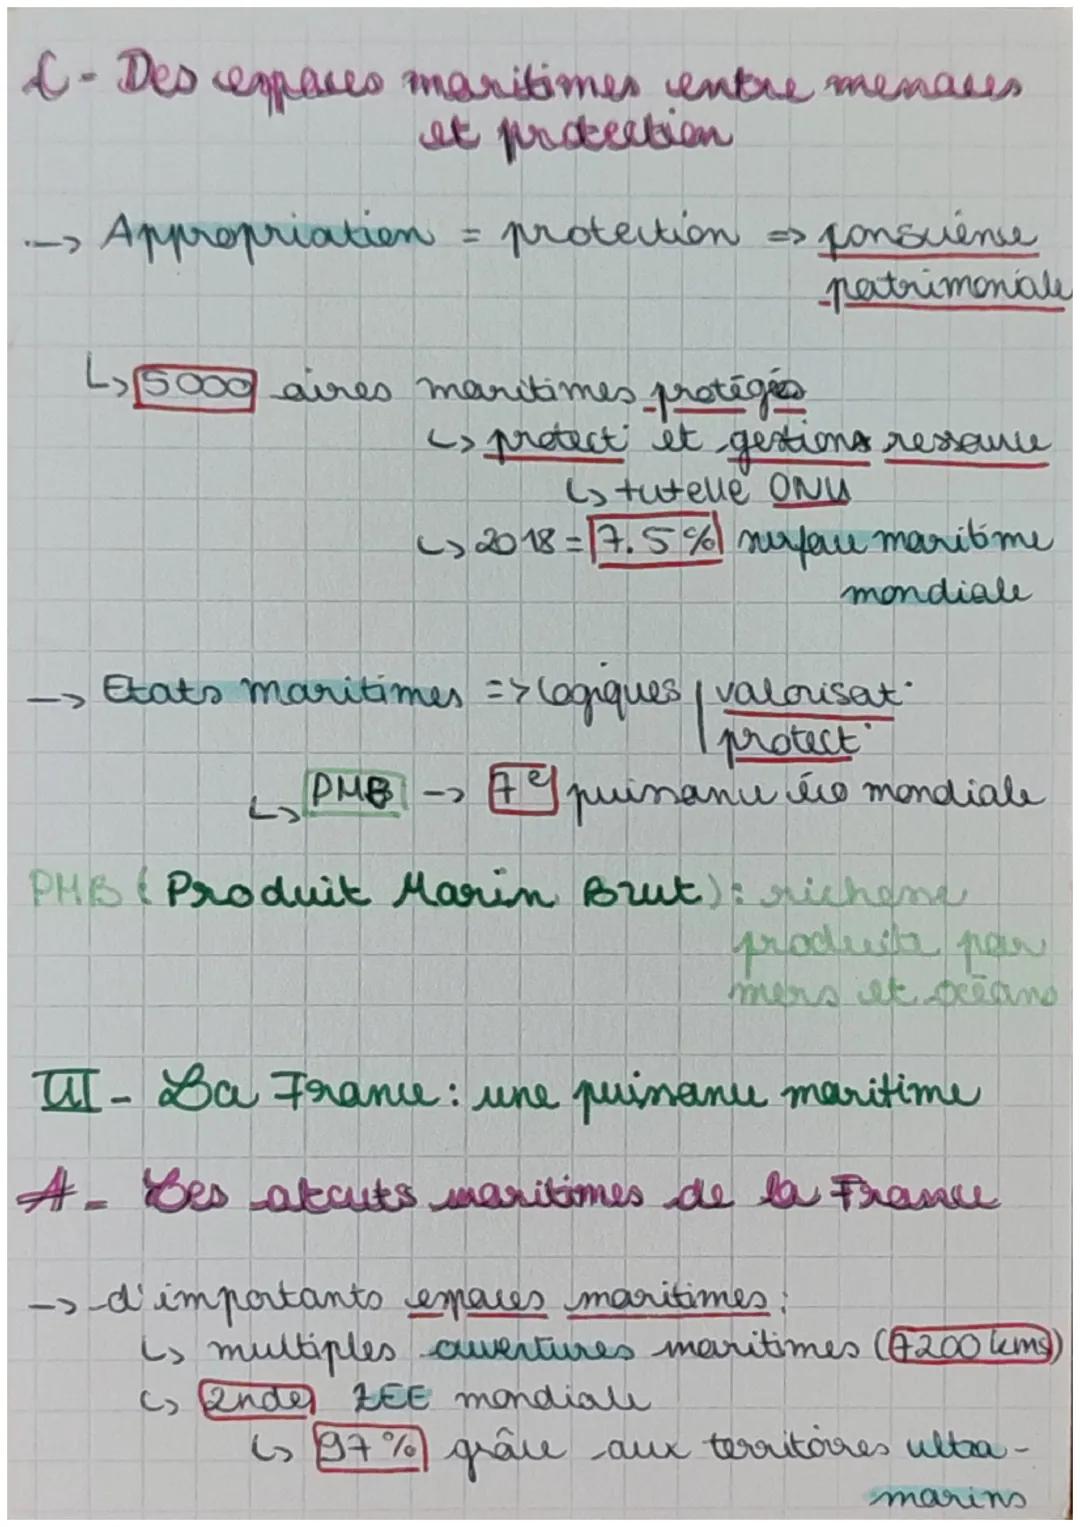 C - Des espaces maritimes entre menaces
et protection
--> Appropriation = protection => conscience
patrimoniale
↳ 5000 aires maritimes protégés
↳ protect° et gestions ressource
↳ tutelle ONU
↳ 2018 = 7.5% surface maritime
mondiale
--> Etats maritimes => logiques | valorisat°
| protect°
↳ PMB -> 7e puissance éco mondiale
PMB (Produit Marin Brut) : richesse
produite par
mers et océans
III - La France : une puissance maritime
A - Les atouts maritimes de la France
--> d'importants espaces maritimes :
↳ multiples ouvertures maritimes (7200 kms)
↳ 2nde ZEE mondiale
↳ 97% grâce aux territoires ultra-
marins